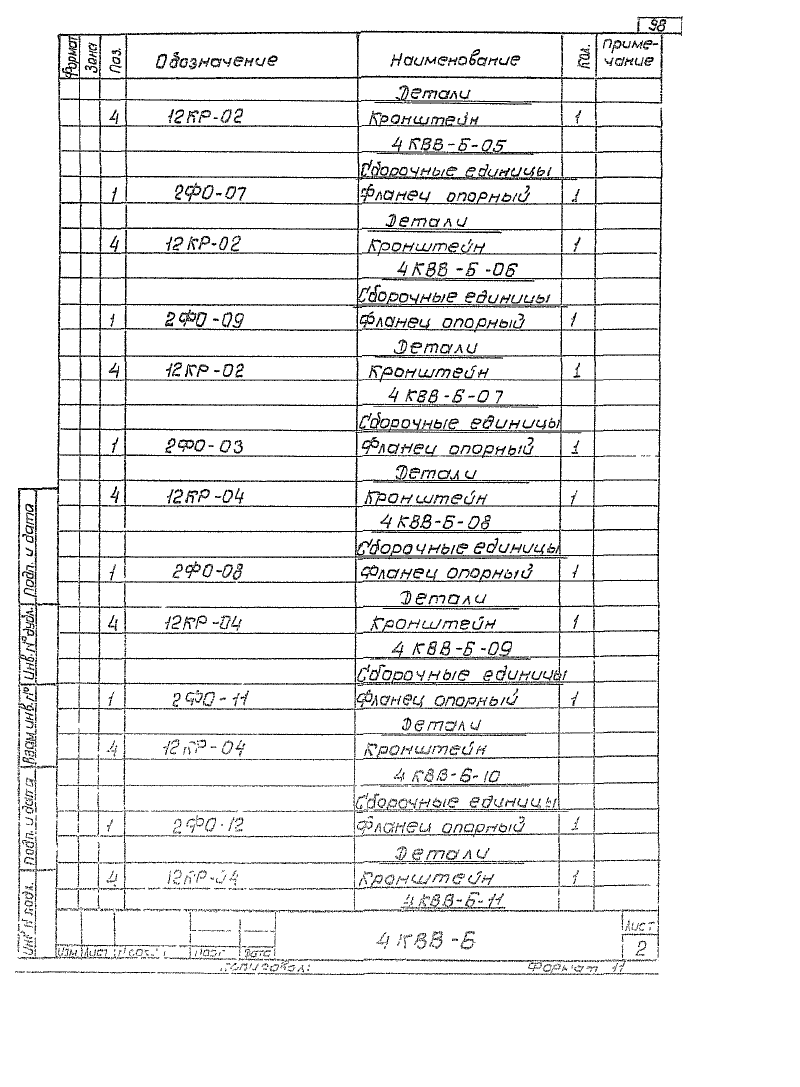 98
Формат Зона Поз. Обозначение Наименование Кол. Приме-
чание
Детали
4 12КР-02 Кронштейн 1
4 КВВ-Б-05
Сборочные единицы
1 2ФО-07 Фланец опорный 1
Детали
4 12КР-02 Кронштейн 1
4 КВВ-Б-06
Сборочные единицы
1 2ФО-09 Фланец опорный 1
Детали
4 12КР-02 Кронштейн 1
4 КВВ-Б-07
Сборочные единицы
1 2ФО-03 Фланец опорный 1
Детали
4 12КР-04 Кронштейн 1
4 КВВ-Б-08
Сборочные единицы
1 2ФО-08 Фланец опорный 1
Детали
4 12КР-04 Кронштейн 1
4 КВВ-Б-09
Сборочные единицы
1 2ФО-11 Фланец опорный 1
Детали
4 12КР-04 Кронштейн
4 КВВ-Б-10
Сборочные единицы
1 2ФО-12 Фланец опорный 1
Детали
4 12КР-04 Кронштейн 1
4 КВВ-Б-11
Подп. и дата
Инв. № дубл.
Взам. инв. №
Подп. и дата
Инв. № подл.
4 КВВ-Б
Лист
2
Изм Лист № докум. Подп. Дата
Копировал: Формат 11